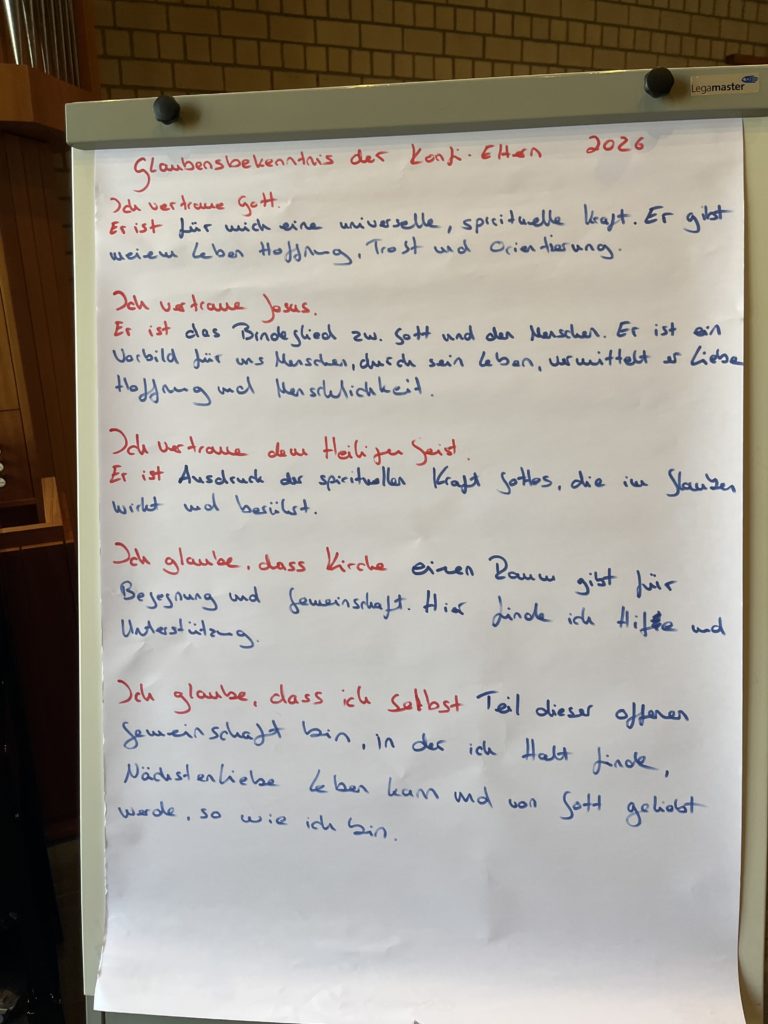 Legamaster
Glaubensbekenntnis der Konfi-Eltern 2026
Ich vertraue Gott.
Er ist für mich eine universelle, spirituelle Kraft. Er gibt
meinem Leben Hoffnung, Trost und Orientierung.
Ich vertraue Jesus.
Er ist das Bindeglied zw. Gott und den Menschen. Er ist ein
Vorbild für uns Menschen, durch sein Leben, vermittelt er Liebe
Hoffnung und Menschlichkeit.
Ich vertraue dem Heiligen Geist.
Er ist Ausdruck der spirituellen Kraft Gottes, die im Glauben
wirkt und berührt.
Ich glaube, dass Kirche einen Raum gibt für
Begegnung und Gemeinschaft. Hier finde ich Hilfe und
Unterstützung.
Ich glaube, dass ich selbst Teil dieser offenen
Gemeinschaft bin, in der ich Halt finde,
Nächstenliebe leben kann und von Gott geliebt
werde, so wie ich bin.